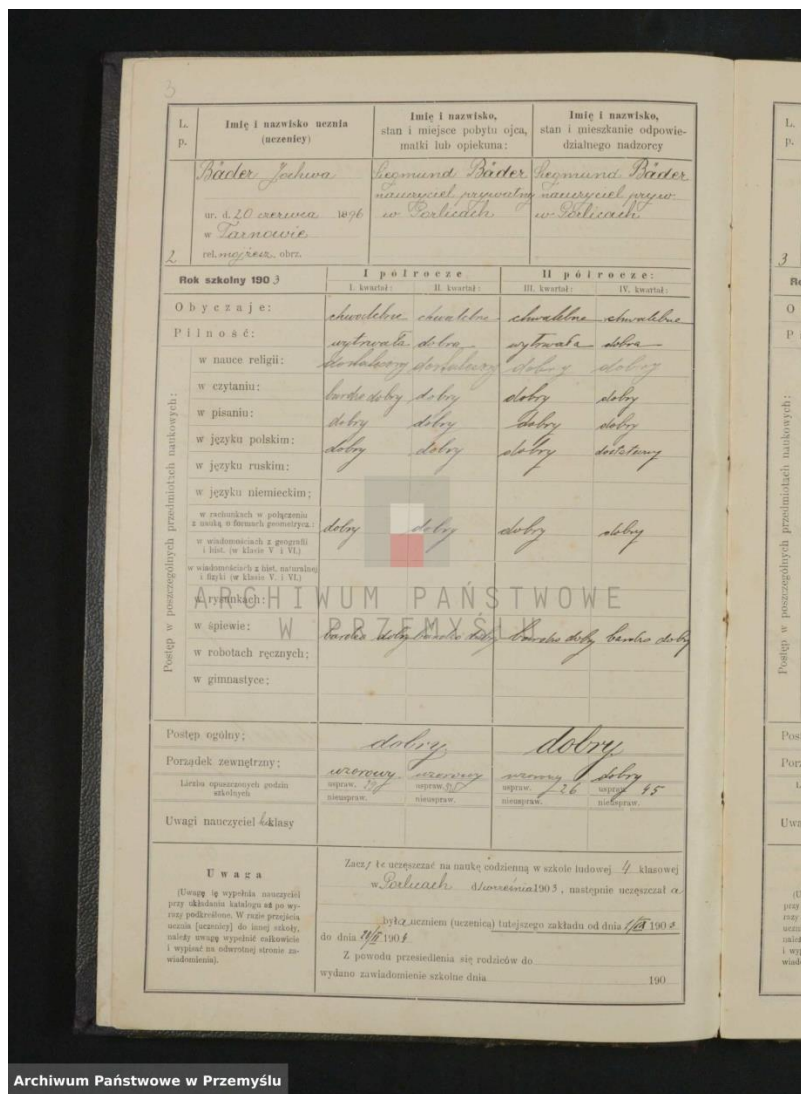 3
L. p.
Imię i nazwisko ucznia (uczenicy)
Imię i nazwisko, stan i miejsce pobytu ojca, matki lub opiekuna:
Imię i nazwisko, stan i mieszkanie odpowiedzialnego nadzorcy
2
Bäder Jochwa
ur. d. 20 czerwca 1896
w Tarnowie
rel. mojżesz. obrz.
Siegmund Bäder
nauczyciel prywatny
w Gorlicach
Siegmund Bäder
nauczyciel pryw.
w Gorlicach
Rok szkolny 1903
I półrocze
II półrocze:
I. kwartał: II. kwartał: III. kwartał: IV. kwartał:
Obyczaje: chwalebne chwalebne chwalebne chwalebne
Pilność: wytrwała dobra wytrwała dobra
Postęp w poszczególnych przedmiotach naukowych:
w nauce religii: dostateczny dostateczny dobry dobry
w czytaniu: bardzo dobry dobry dobry dobry
w pisaniu: dobry dobry dobry dobry
w języku polskim: dobry dobry dobry dostateczny
w języku ruskim:
w języku niemieckim:
w rachunkach w połączeniu z nauką o formach geometrycz.: dobry dobry dobry dobry
w wiadomościach z geografii i hist. (w klasie V. i VI.)
w wiadomościach z hist. naturalnej i fizyki (w klasie V. i VI.)
w rysunkach:
w śpiewie:
w robotach ręcznych: bardzo dobry bardzo dobry bardzo dobry bardzo dobry
w gimnastyce:
ARCHIWUM PAŃSTWOWE
W PRZEMYŚLU
Postęp ogólny: dobry dobry
Porządek zewnętrzny: wzorowy wzorowy wzorowy dobry
Liczba opuszczonych godzin szkolnych
uspraw. uspraw. uspraw. 26 uspraw. 45
nieuspraw. nieuspraw. nieuspraw. nieuspraw.
Uwagi nauczyciel klasy
Uwaga
(Uwagę tę wypełnia nauczyciel
przy układaniu katalogu aż po wy-
razy podkreślone. W razie przejścia
ucznia [uczenicy] do innej szkoły,
należy uwagę wypełnić całkowicie
i wypisać na odwrotnej stronie za-
wiadomienia).
uczęszczać na naukę codzienną w szkole ludowej 4 klasowej
w Gorlicach d. września 1903, następnie uczęszczał a
była uczniem (uczenica) tutejszego zakładu od dnia 190
do dnia 190
Z powodu przesiedlenia się rodziców do
wydano zawiadomienie szkolne dnia 190
L. p.
3
Archiwum Państwowe w Przemyślu